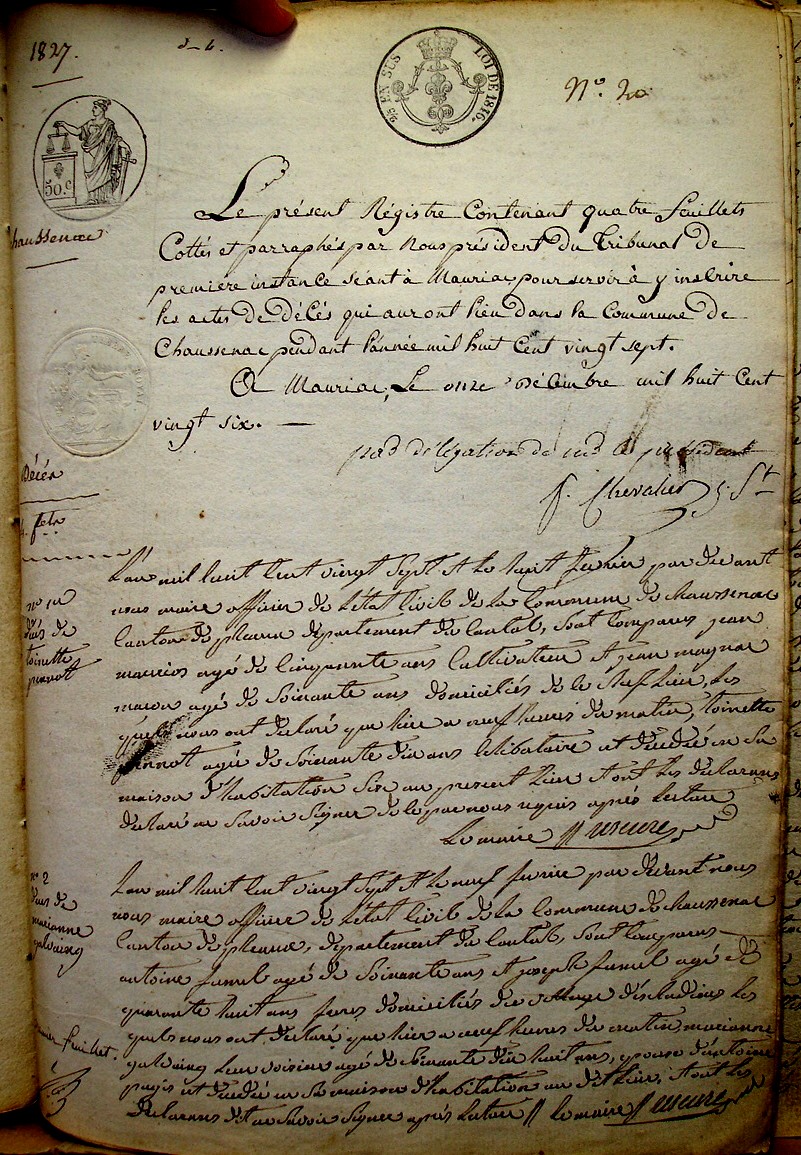 1827.
25 EN SUS LOI DE 1816.
N.º 20
50.c
haussenac
Le présent Régistre Contenant quatre feuillets
Cottés et parraphés par Nous président du Tribunal de
premiere instance séant à Mauriac pour servir à y inscrire
les actes de décés qui auront lieu dans la Commune de
Chaussenac pendant l'année mil huit Cent vingt sept.
A Mauriac, Le onze Décembre mil huit Cent
vingt six. —
par délégation de président
Chevalier
Décés
4. fets
L'an mil huit cent vingt sept et le huit par devant
nous maire officier de l'état civil de la Commune de chaussenac
canton de pleaux département du Cantal, sont comparus jean
mauries agé de cinquante ans Cultivateur et jean magnac
macon agé de soixante ans domiciliés de le chef lieu, les
quels nous ont declaré que hier a neuf heures du matin, toinette
agé de soixante dix ans celibataire et decedé en sa
maison d'habitation sise au present lieu et ont les declarans
declaré ne savoir signer de le par nous requis après lecture
Le maire
nº 1er
décés de
toinette
L'an mil huit cent vingt sept et le neuf par devant nous
nous maire officier de l'état civil de la Commune de chaussenac
canton de pleaux, departement du Cantal, sont comparus
antoine jumel agé de soixante ans et joseph jumel agé de
quarante huit ans freres domiciliés du village d'escladines les
quels nous ont declaré que hier a neuf heures du matin marianne
galvaing leur voisine agé de soixante dix huit ans, epouse d'antoine
pagis et decedé en sa maison d'habitation au dit lieu, et ont les
declarans dit ne savoir signer après lecture le maire
nº 2
décés de
marianne
galvaing
feuillet.